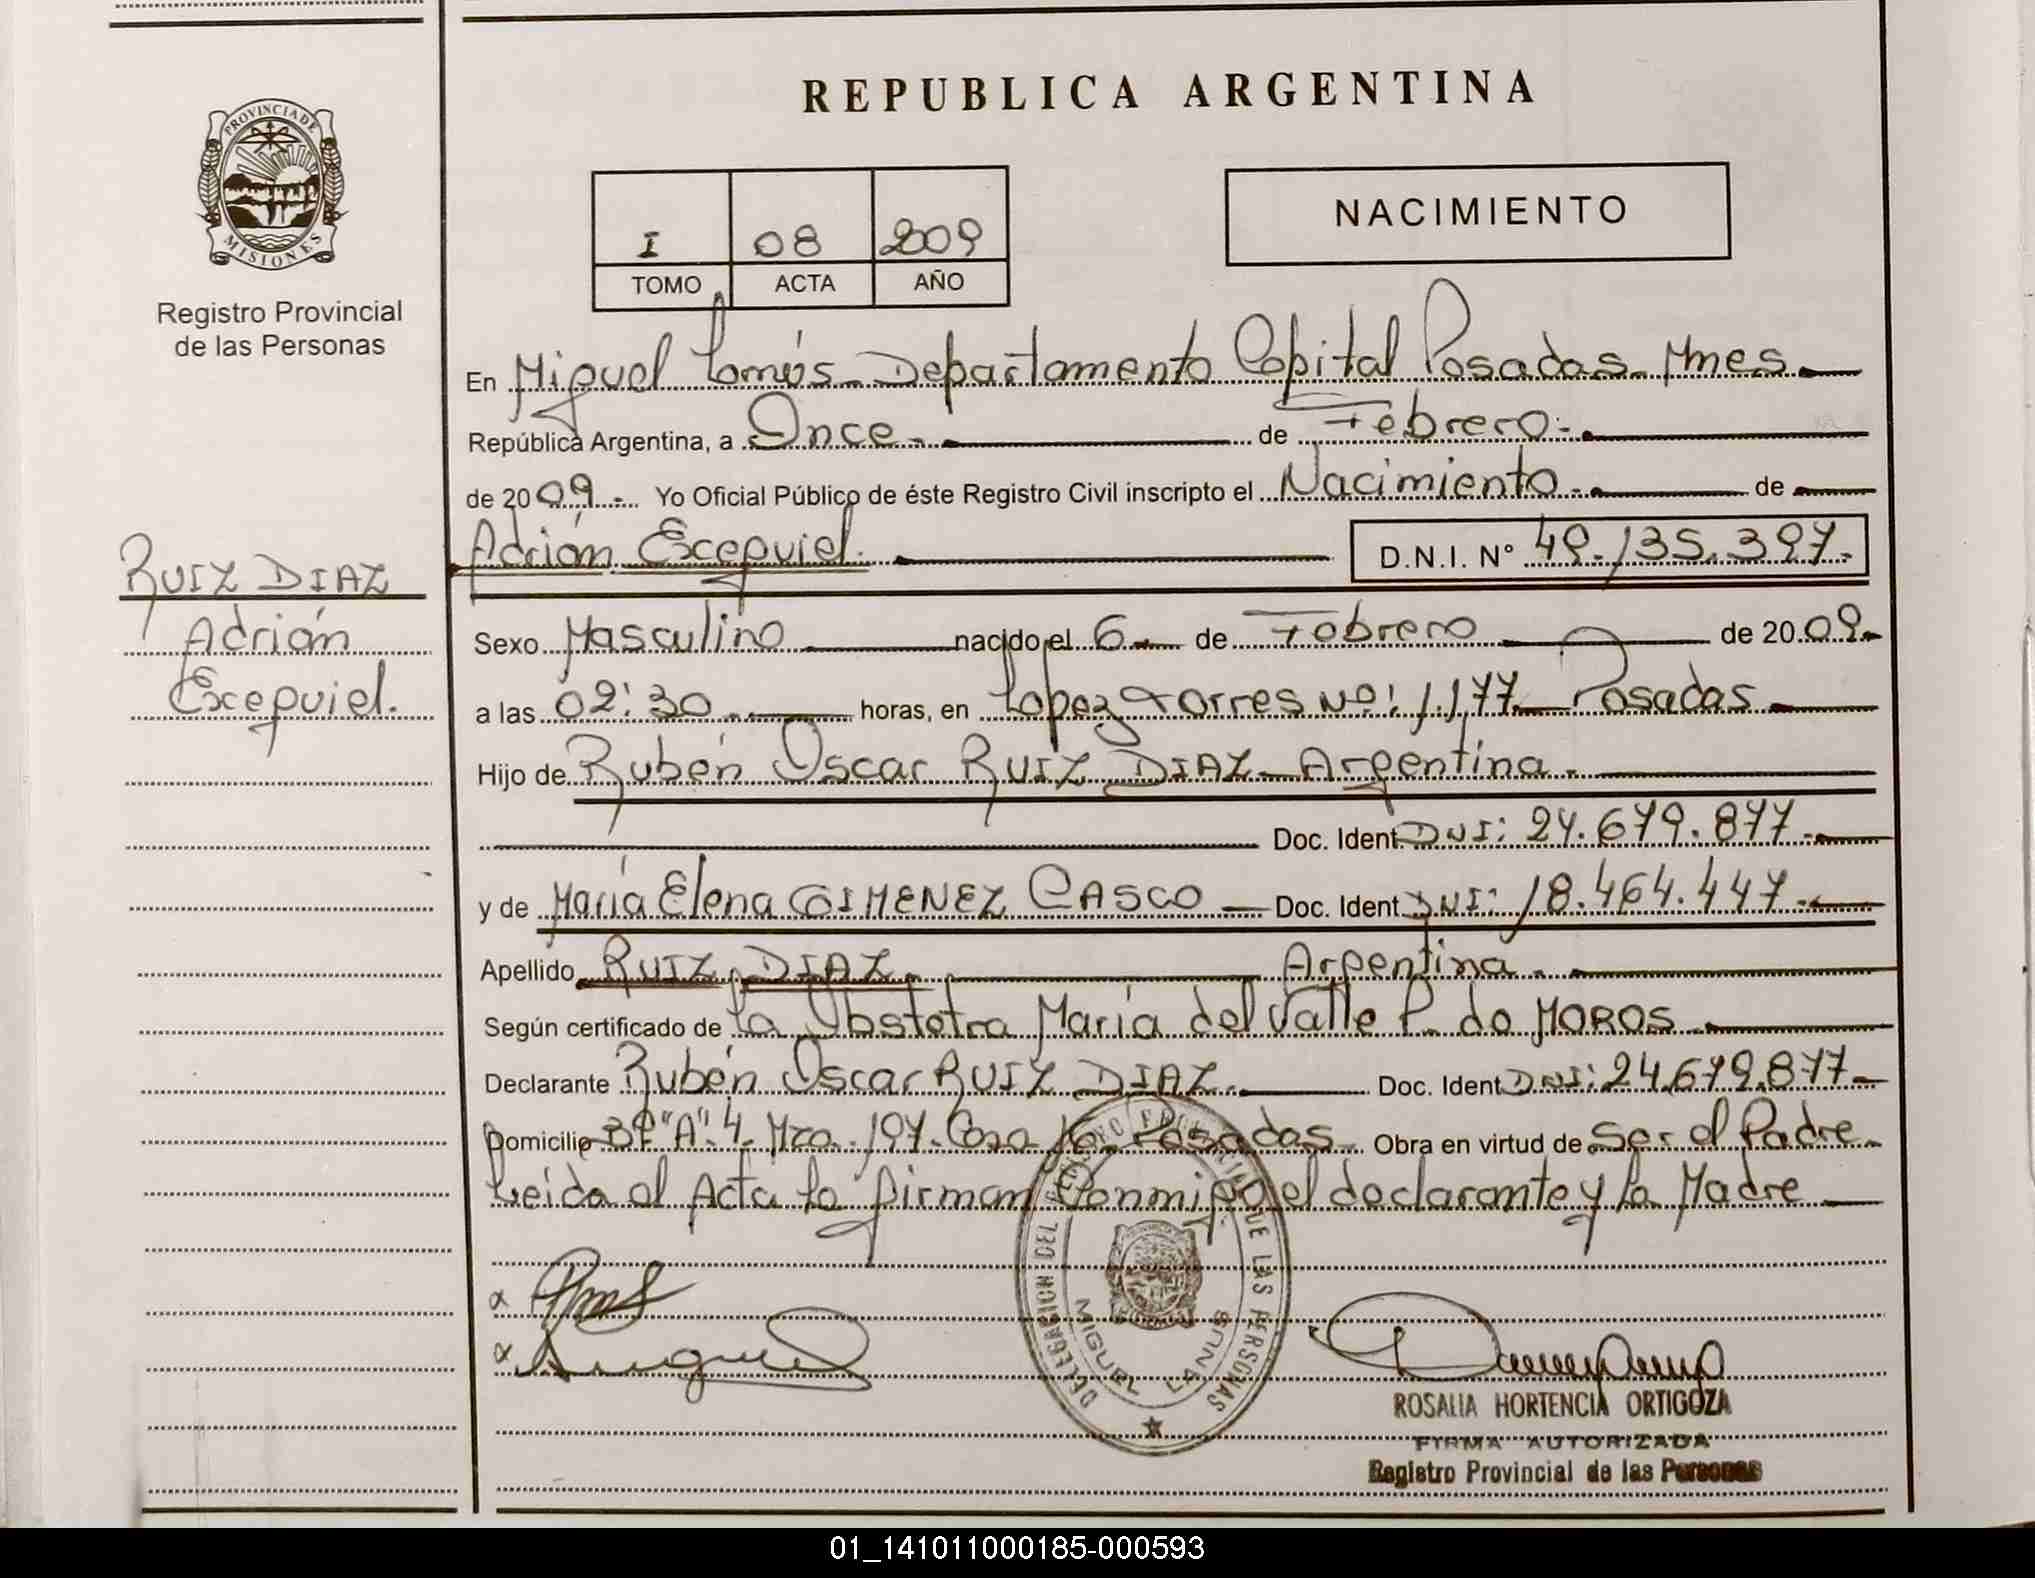 REPUBLICA ARGENTINA
PROVINCIA DE
MISIONES
Registro Provincial
de las Personas
I 08 2009
TOMO ACTA AÑO
NACIMIENTO
En Miguel Lanús Departamento Capital Posadas Mnes
República Argentina, a Once de Febrero
de 2009 Yo Oficial Público de éste Registro Civil inscripto el Nacimiento de
Adrián Execquiel. D.N.I. Nº 49.135.397.
RUIZ DIAZ
Adrián
Execquiel.
Sexo Masculino nacido el 6 de Febrero de 2009
a las 02:30 horas, en Lopez Torres Nº: 1.177 Posadas
Hijo de Rubén Oscar RUIZ DIAZ Argentina
Doc. Ident. DNI: 24.679.877.
y de María Elena GIMENEZ CASCO Doc. Ident DNI: 18.464.447.
Apellido RUIZ DIAZ Argentina
Según certificado de la Obstetra María del Valle P. de MOROS
Declarante Rubén Oscar RUIZ DIAZ Doc. Ident DNI: 24.679.877
Domicilio Bº "A" 4 Mza. 197 Casa 16 Posadas Obra en virtud de Ser el Padre
Leida el Acta la firman Conmigo el declarante y la Madre
DELEGACION DEL REGISTRO PROVINCIAL DE LAS PERSONAS
MIGUEL LANUS
ROSALIA HORTENCIA ORTIGOZA
FIRMA AUTORIZADA
Registro Provincial de las Personas
01_141011000185-000593